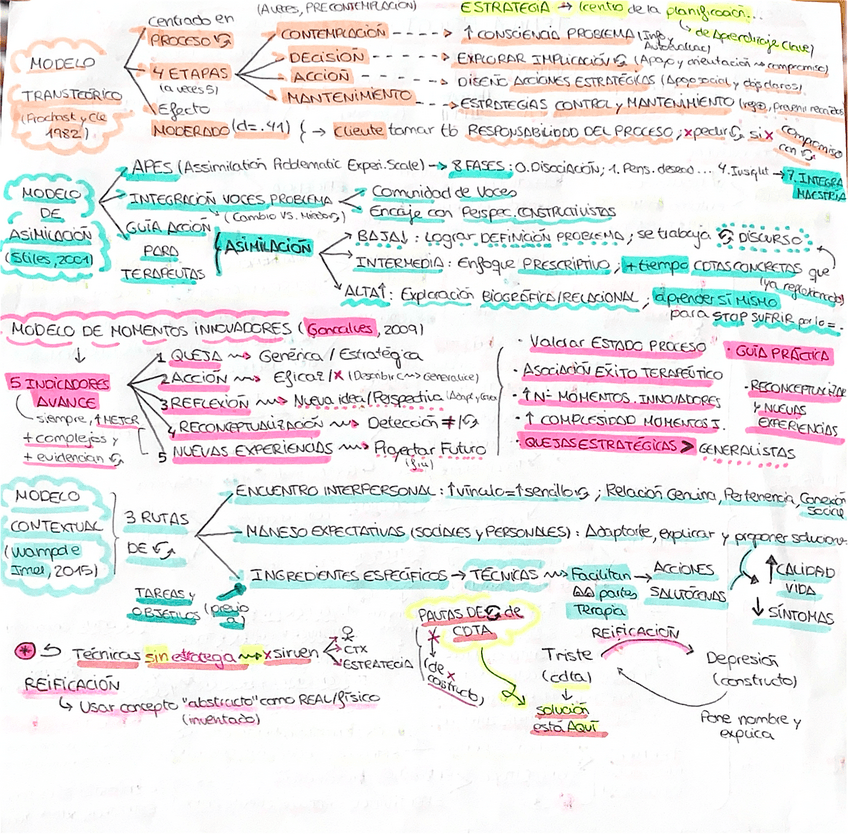 (A VECES, PRECONTEMPLACIÓN) ESTRATEGIA → (centro de la planificación...
↳ de Aprendizaje Clave)
MODELO
TRANSTEÓRICO
(Prochask y Cle
1982)
centrado en
PROCESO
4 ETAPAS
(a veces 5)
Efecto
MODERADO (d=.41) { → Cliente tomar tb RESPONSABILIDAD DEL PROCESO; xpedir si x compromiso
con
CONTEMPLACIÓN ---> ↑ CONSCIENCIA PROBLEMA (Info,
DECISIÓN ---> EXPLORAR IMPLICACIÓN (Apoyo y orientación → compromiso)
ACCIÓN ---> DISEÑO ACCIONES ESTRATÉGICAS (Apoyo social y obj claros)
MANTENIMIENTO ---> ESTRATEGIAS CONTROL Y MANTENIMIENTO
MODELO
DE
ASIMILACIÓN
(Stiles, 2001)
APES (Assimilation Problematic Experi. Scale) → 8 FASES: 0. Disociación; 1. Pens. desead... 4. Insight → 7. INTEGRA
MAESTRÍA
INTEGRACIÓN VOCES PROBLEMA
(Cambio VS. Miedo)
Comunidad de Voces
Encaje con Perspec. CNSTRCTIVISTAS
GUÍA ACCIÓN
PARA
TERAPEUTAS
ASIMILACIÓN
BAJA↓: Lograr DEFINICIÓN PROBLEMA; se trabaja DISCURSO
INTERMEDIA: Enfoque PRESCRIPTIVO; + tiempo CDTAS CONCRETAS que
ALTA↑: Exploración BIOGRÁFICA/RELACIONAL; aprender SÍ MISMO
para STOP SUFRIR por lo =.
MODELO DE MOMENTOS INNOVADORES (Goncalves, 2009)
↓
5 INDICADORES
AVANCE
siempre, ↑ MEJOR
+ complejos y
+ evidencian
1 QUEJA ⇝ Genérica / Estratégica
2 ACCIÓN ⇝ Eficaz / x (Describir ⇝ Generalice)
3 REFLEXIÓN ⇝ Nueva idea/Perspectiva
4 RECONCEPTUALIZACIÓN ⇝ Detección ≠/
5 NUEVAS EXPERIENCIAS ⇝ Proyectar Futuro
· Valorar ESTADO PROCESO
· ASOCIACIÓN ÉXITO TERAPÉUTICO
· ↑ Nº MOMENTOS. INNOVADORES
· ↑ COMPLEJIDAD MOMENTOS I.
· QUEJAS ESTRATÉGICAS > GENERALISTAS
· GUÍA PRÁCTICA
· RECONCEPTUALIZAR
Y NUEVAS
EXPERIENCIAS
MODELO
CONTEXTUAL
(Wampold e
Imel, 2015)
3 RUTAS
DE
ENCUENTRO INTERPERSONAL: ↑ vínculo = ↑ sencillo; Relación Genuina, Pertenencia, Conexión
Social
MANEJO EXPECTATIVAS (SOCIALES y PERSONALES): Adaptarte, explicar y proponer solucion.
INGREDIENTES ESPECÍFICOS → TÉCNICAS ⇝ Facilitan → ACCIONES
partes SALUTÓGENAS
Terapia
↑ CALIDAD
VIDA
↓ SÍNTOMAS
TAREAS Y
OBJETIVOS
* Técnicas sin estratega ⇝ x sirven
CTX
ESTRATEGIA
REIFICACIÓN
↳ Usar concepto "abstracto" como REAL/físico
(inventado)
PAUTAS DE de
CDTA
x
(de x
costructo)
solución
está AQUÍ
REIFICACIÓN
Triste
(cdta)
Depresión
(constructo)
Pone nombre y
explica